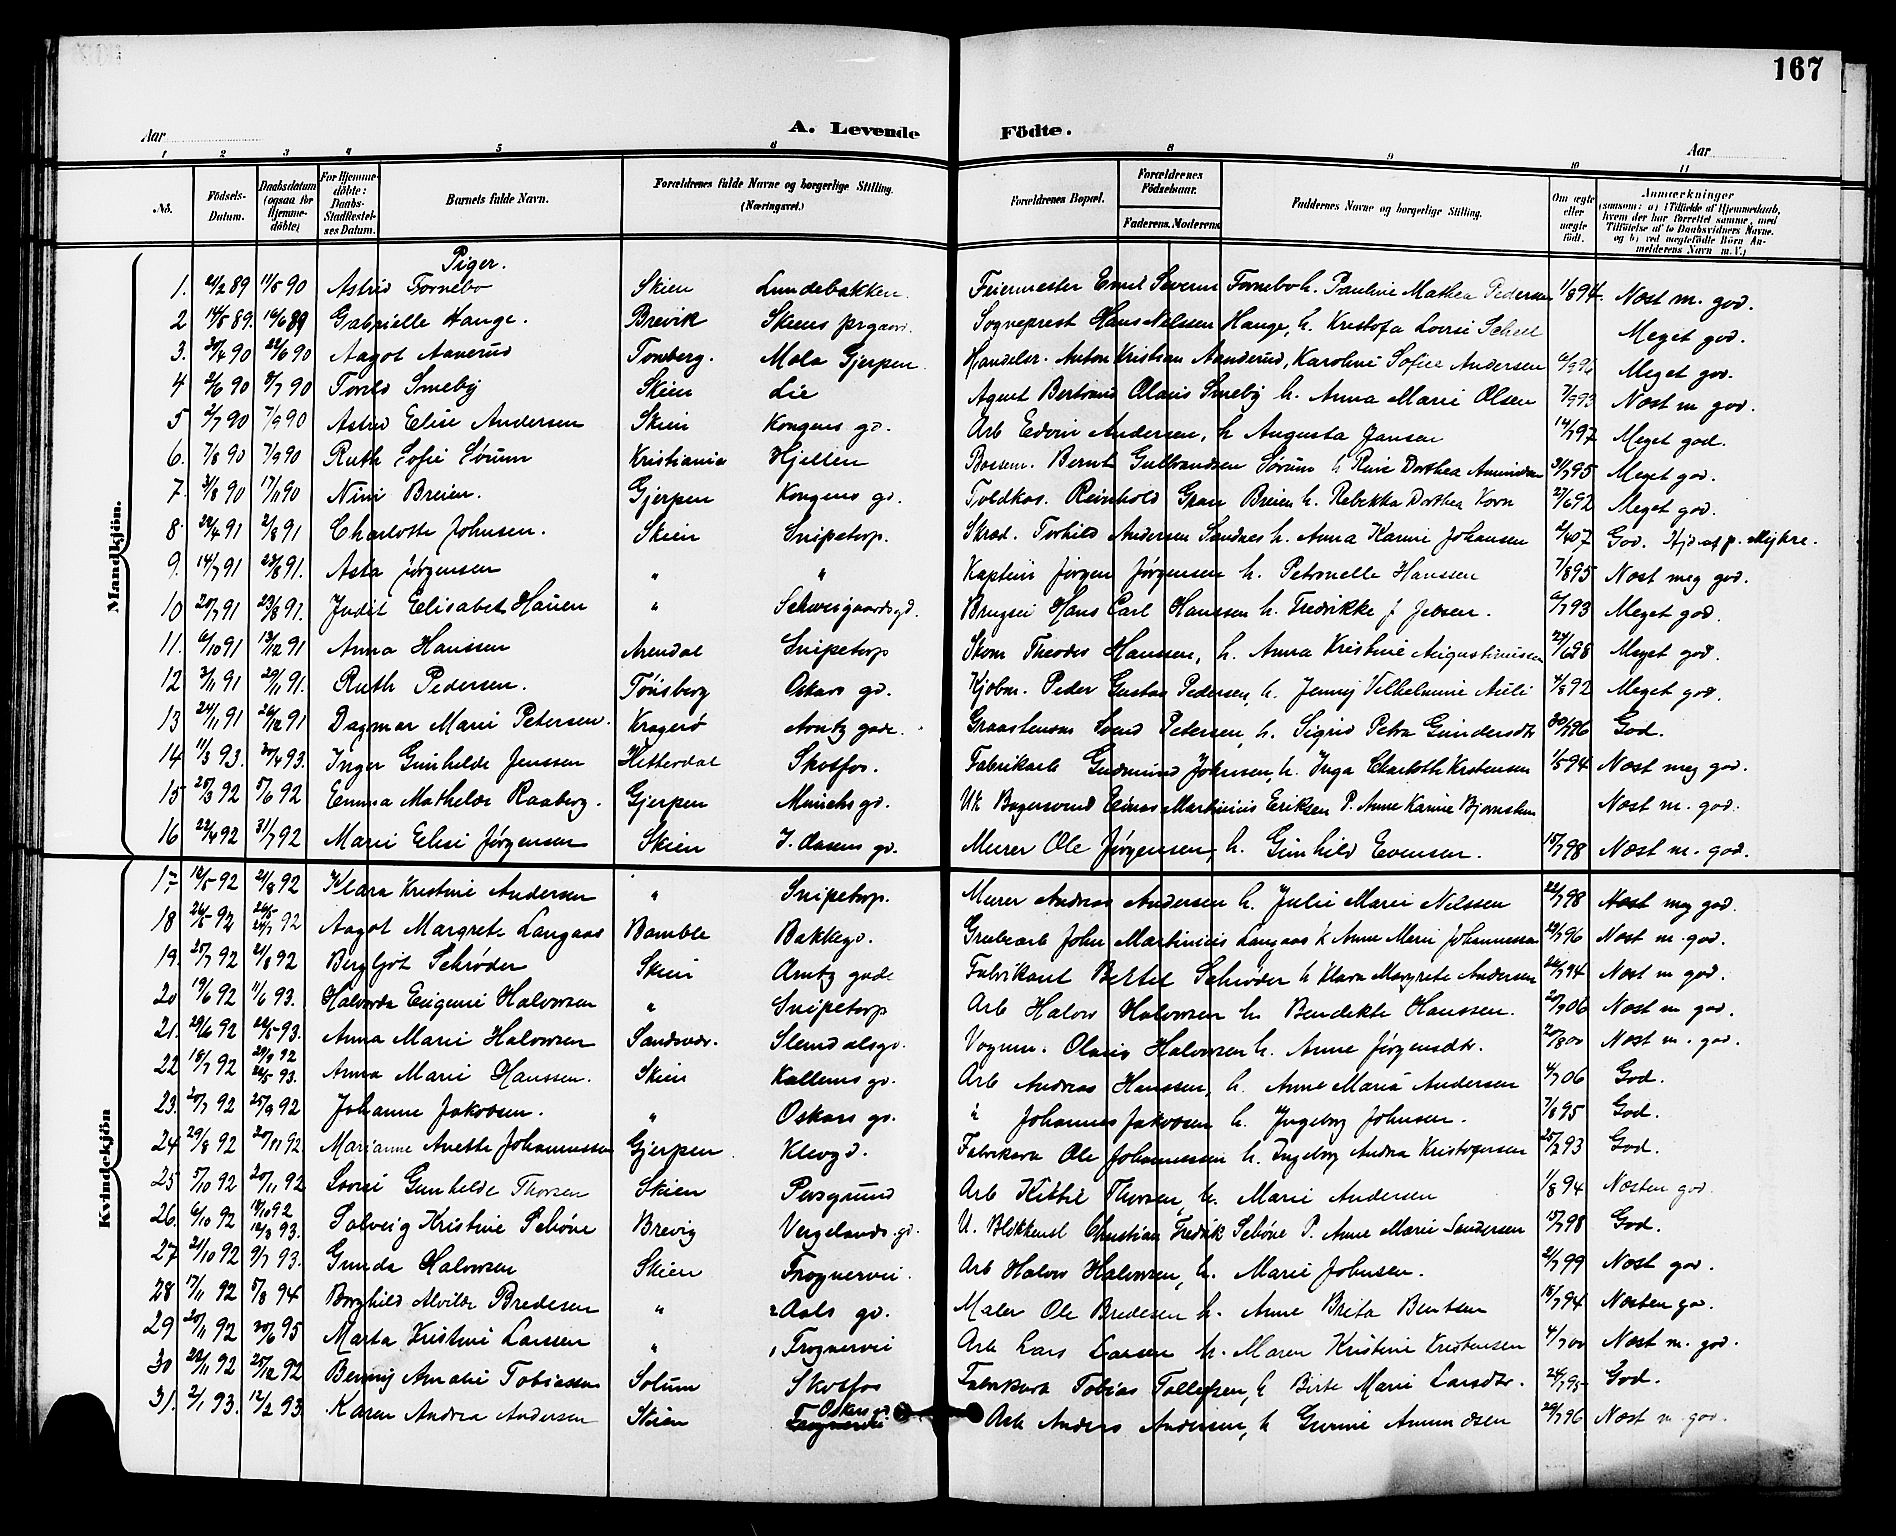 167
Aar
A. Levende Födte.
Aar
1 2 3 4 5 6 8 9 10 11
No. Födsels-Datum. Daabsdatum (ogsaa for Hjemmedöbte) For Hjemmedöbte: Daabs-Stadfæstelses Datum. Barnets fulde Navn. Forældrenes fulde Navne og borgerlige Stilling. (Næringsvei.) Forældrenes Bopæl. Forældrenes Födselsaar. Faderens. Moderens. Faddernes Navne og borgerlige Stilling. Om ægte eller uægte født. Anmærkninger (saasom: a) i Tilfælde af Hjemmedaab, hvem der har forrettet samme, med Tilföielse af to Daabsvidners Navne, og b) ved uægtefødte Börn Anmelderens Navn m. V.)
Mandkjön.
Piger.
1. 24/2 89 11/5 90 Astrid Tornebo Skien Lundebakken Feiermester Emil Severin Tornebo h. Pauline Mathea Pedersen 1/8 94. Næst m. god.
2 14/5 89. 16/6 89 Gabrielle Hauge. Brevik Skiens prgaard. Sogneprest Hans Nilssen Hauge, h. Kristofa Lovise Scheel Meget god.
3. 30/4 90 22/6 90 Aagot Aanerud Tønsberg. Mæla Gjerpen. Handelsr. Anton Kristian Aanderud, Karoline Sofie Andersen Meget god.
4 2/6 90 3/7 90 Torild Smeby Skien Lie Agent Bertrand Olaus Smeby h. Anna Marie Olsen 7/9 93 Næst m god.
5 2/7 90 7/9 90 Astrid Elise Andersen Skien Kongens gd. Arb Edvin Andersen, h Augusta Jansen 14/7 97 Meget god.
6. 7/8 90 7/9 90 Ruth Sofie Sørum Kristiania Hjellen Bernt Gulbrandsen Sørum h Dorthea 31/7 95 Meget god.
7. 31/8 90 17/11 90 Nini Breien. Gjerpen Kongens gd. Toldkas. Reinhold Gran Breien h. Rebekka Dorthea Korn 27/6 92 Meget god.
8. 22/4 91 2/8 91 Charlotte Johnsen. Skien Snipetorp. Skræd. Torhild Andersen Sandnes h. Anna Karine Johansen 2/4 07 God.
9. 14/7 91 23/8 91. Asta Jørgensen " " Kaptein Jørgen Jørgensen h. Petronelle Hanssen 7/8 95 Næst meg god.
10 20/7 91 23/8 91. Judit Elisabet Hauen " Schweigaardsgd. Hans Carl Hanssen h. Fredrikke J Jebsen. 6/7 93 Meget god.
11. 6/10 91 13/12 91 Anna Hanssen Arendal Snipetorp Skom Theodor Hanssen, h. Anna Kristine Augustinussen 24/6 98 Meget god.
12 3/11 91 29/11 91. Ruth Pedersen. Tønsberg Oskars gd. Kjøbm. Peder Gustav Pedersen, h. Jenny Vilhelmine 4/8 92 Meget god.
13 24/11 91 26/12 91 Dagmar Marie Petersen. Kragerø Arntz gade. Svend Petersen, h. Sigrid Petra Gundersdtr 30/7 96 God.
14 11/3 93. 30/4 93. Inger Gunhilde Jenssen Hitterdal Skotfos. Fabrikarb Gudmund Johnsen, h. Inga Charlotte Kristensen 1/5 94 Næst meg god.
15 25/3 92 5/6 92 Emma Mathilde Raaberg. Gjerpen Munchs gd. Uk Bagersvend Einar Martinius Eriksen P. Anne Karine Bjørnsten Næst m. god.
16 22/4 92 31/7 92 Marie Elise Jørgensen Skien I. Aasens gd. Murer Ole Jørgensen, h. Gunhild Evensen. 15/7 98 Næst m. god.
Kvindekjön
17 12/5 92 21/8 92 Klara Kristine Andersen " Snipetorp. Murer Andreas Andersen h. Julie Marie Nilssen 22/7 98 Næst meg god.
18 26/5 92 26/5 24/7 92 Aagot Margrete Langaas Bamble Bakkegd. Grubearb John Martinius Langaas h Anne Marie Johannessen 22/7 96 Næst m. god.
19. 25/7 92 21/8 92 Bergljot Schrøder Skien Arntz gade Fabrikant Bertel Schrøder h Klara Margrete Andersen 22/7 94 Næst m god.
20 19/6 92 11/6 93. Halvarda Eugenie Halvorsen " Snipetorp Arb Halvor Halvorsen h. Bendikte Hanssen. 2/9 06 Næst m god.
21. 29/6 92 22/5 93. Anna Marie Halvorsen Sandsvær. Slemdalsgd. Vognm. Olaus Halvorsen h. Anne Jørgensdtr. 20/8 00 Næst m. god.
22 18/7 92 29/9 92 22/5 93. Anna Marie Hanssen. Skien Kallemsgd. Arb Andreas Hanssen, h. Anne Maria Andersen 4/7 06 God.
23. 20/7 92 25/9 92 Johanne Jakobsen. " Oskars gd. " Johannes Jakobsen h. Ingeborg Johnsen. 7/8 95 God.
24 29/8 92 20/11 92 Marianne Anette Johannessen Gjerpen Klevgd. Fabrikarb Ole Johannessen h. Ingeborg Andrea Kristofersen 25/7 93 God.
25 5/10 92 20/11 92 Lovise Gunhilde Thorsen Skien Porsgrund Arb Kittil Thorsen, h. Marie Andersen 1/8 94 Næsten god.
26. 6/10 92 19/10 92 12/3 93. Solveig Kristine Schøne Brevig Vergelands. gd. U. Blikkensl Christian Fredrik Schøne P. Anne Marie Sandersen 15/7 98 God.
27 21/10 92 9/7 93. Gunda Halvorsen Skien Frognervei. Arb Halvor Halvorsen, h. Marie Johnsen. 21/7 99 Næst god.
28 17/11 92 5/8 94 Borghild Alvilde Bredesen " Aals gd. Maler Ole Bredesen h. Anne Brita Bentsen 18/7 94 Næsten god.
29 20/11 92 30/6 95 Marta Kristine Larssen " Frognervei Arb Lars Larsen h. Maren Kristine Kristensen 4/7 00 Næst m. god.
30 22/11 92 25/12 92 Benny Amalie Tobiassen Solum Skotfos Fabrikarb Tobias Tollefsen, h Birte Marie Larsdtr. 24/7 95 God.
31. 2/1 93. 12/2 93 Karen Andrea Andersen Skien Oskars gd. Frognervei Arb Anders Andersen, h Gurine Amundsen 22/7 96 Næst m. god.